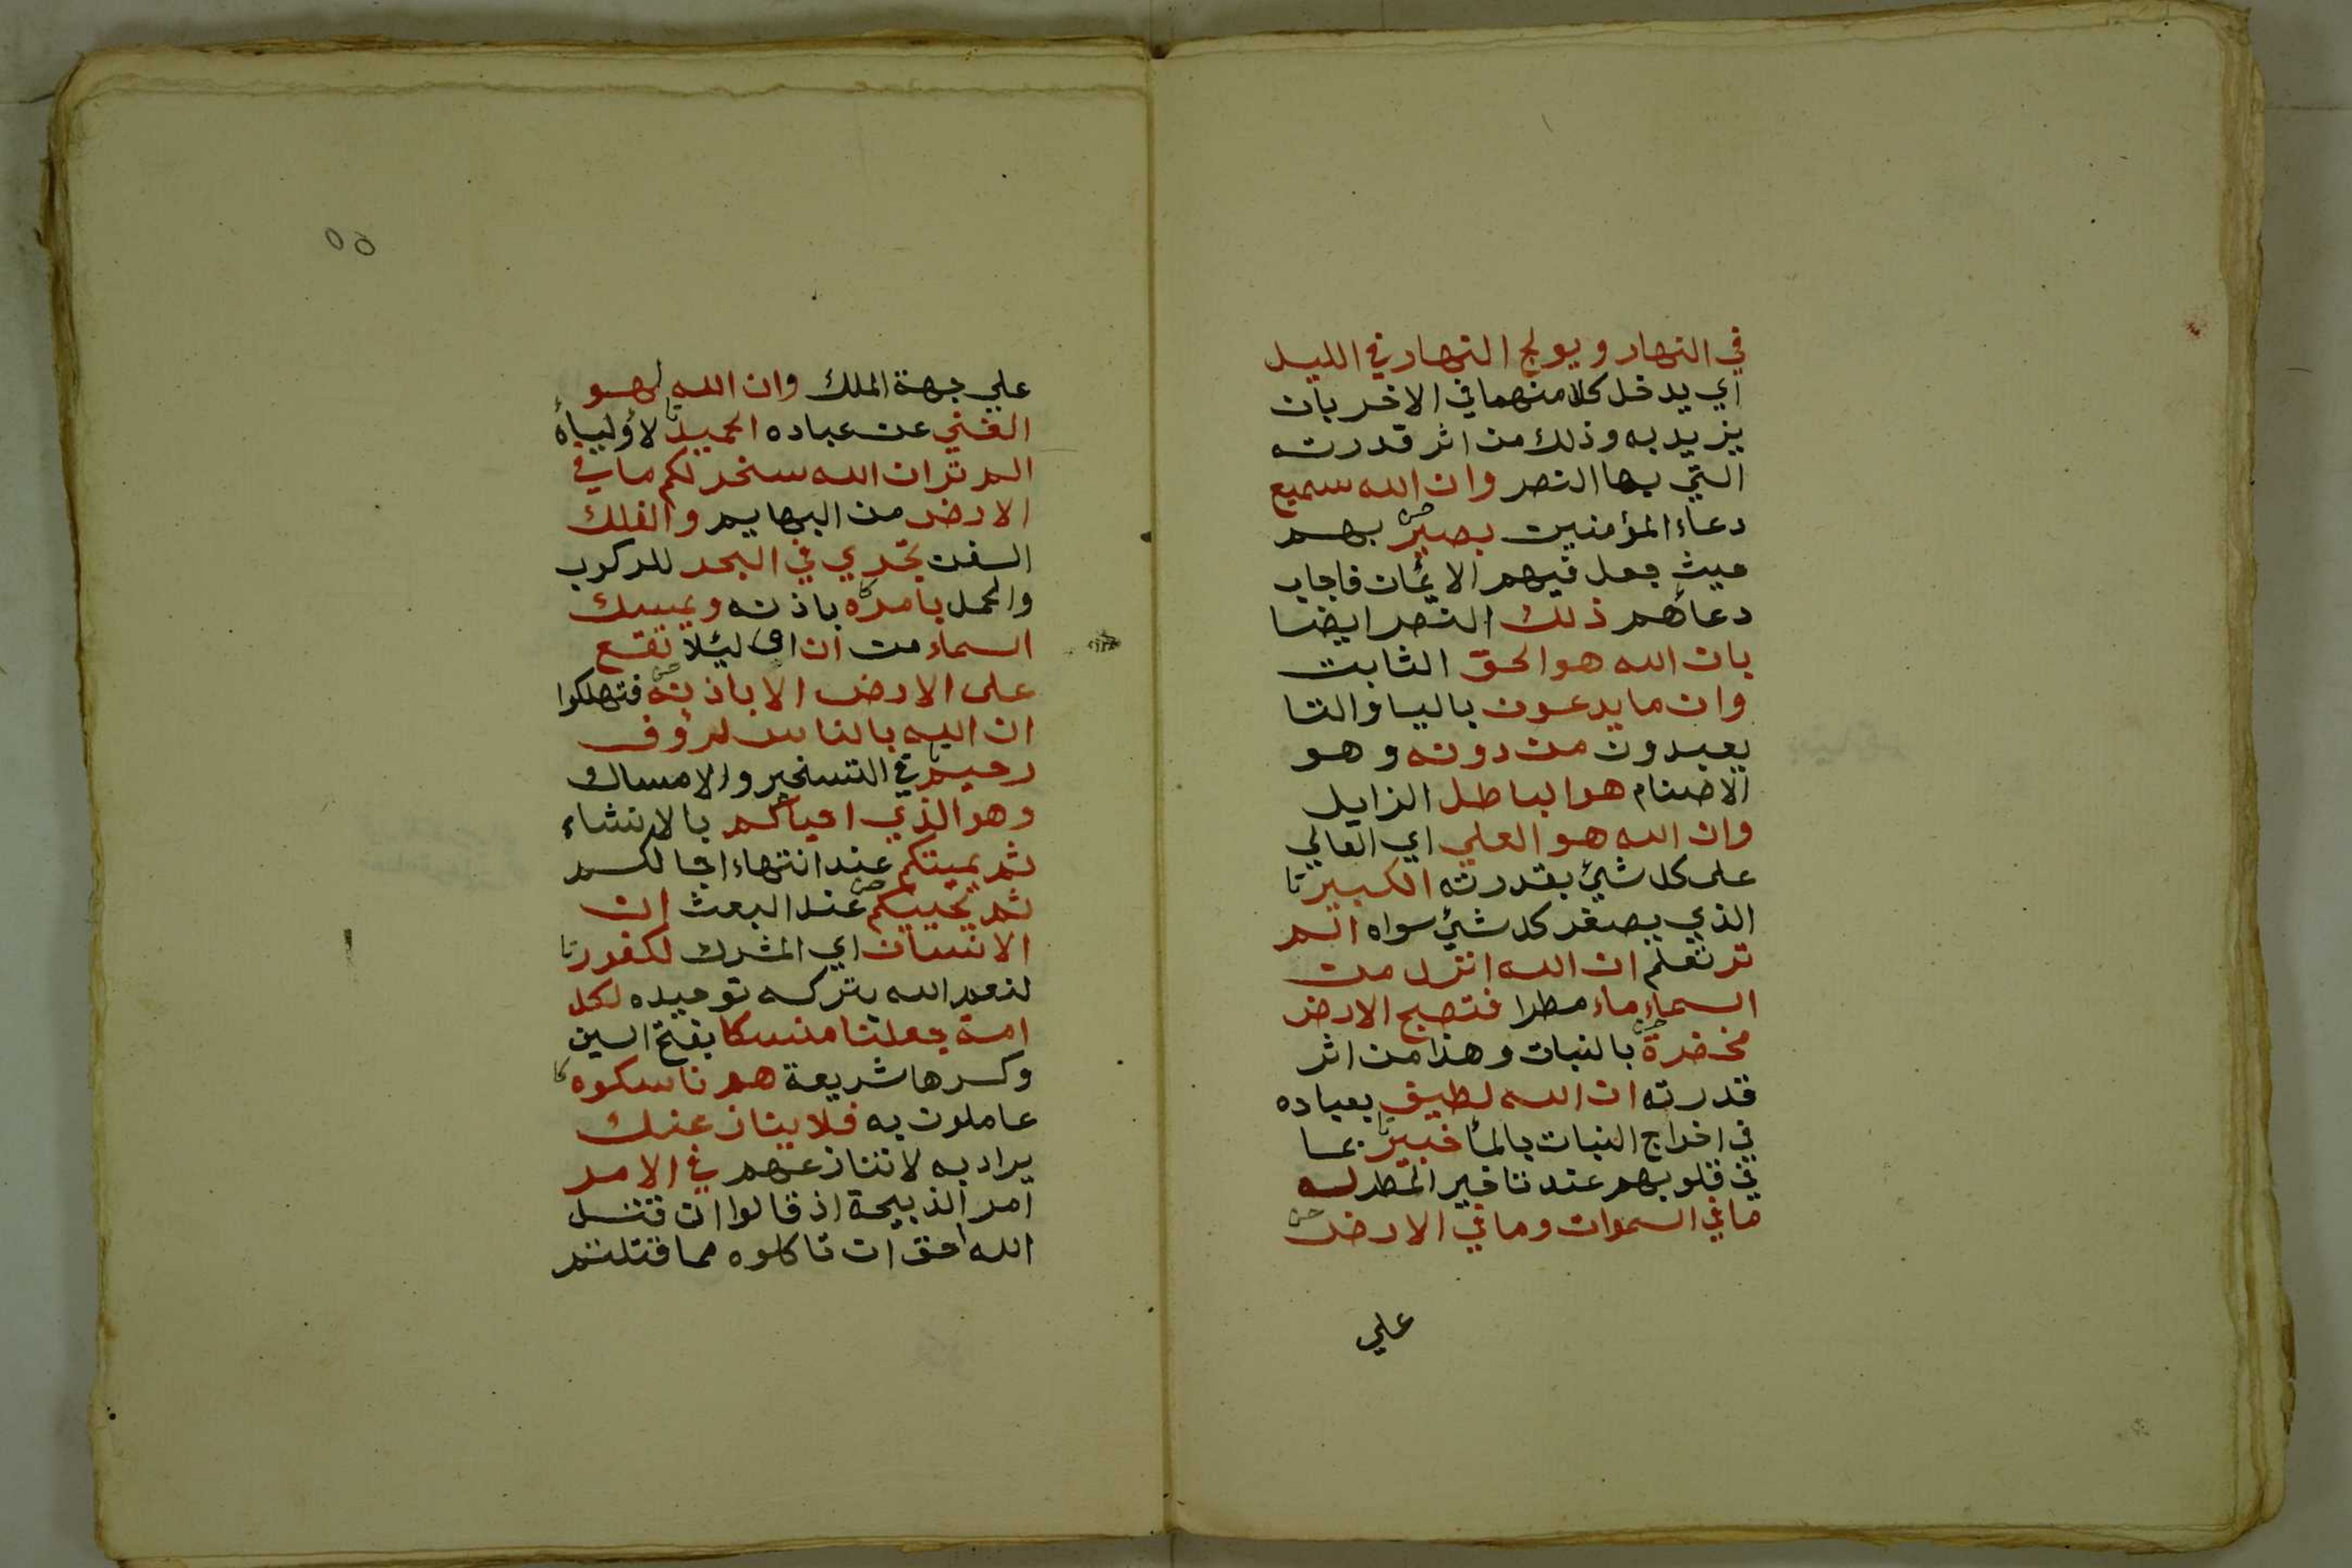 في النهار ويولج النهار في الليل
اي يدخل كلا منهما في الاخر بان
يزيد به وذلك من اثر قدرته
التي بها النصر وان الله سميع
دعاء المؤمنين بصير بهم
حيث جعل فيهم الايمان فاجاب
دعاهم ذلك النصر ايضا
بان الله هو الحق الثابت
وان ما يدعون باليا والتا
يعبدون من دونه وهو
الاصنام هو الباطل الزايل
وان الله هو العلي اي العالي
على كل شيئ بقدرته الكبير
الذي يصغر كل شيئ سواه الم
تر تعلم ان الله انزل من
السماء ماء مطرا فتصبح الارض
مخضرة بالنبات وهذا من اثر
قدرته ان الله لطيف بعباده
في اخراج النبات بالما خبير بما
في قلوبهم عند تاخير المطر له
ما في السموات وما في الارض
علي
٥٥
علي جهة الملك وان الله لهو
الغني عن عباده الحميد لاوليائه
الم تر ان الله سخر لكم ما في
الارض من البهايم والفلك
السفن تجري في البحر للركوب
والحمل بامره باذنه ويمسك
السماء من ان اي ليئلا تقع
على الارض الا باذنه فتهلكوا
ان الله بالناس لرؤف
رحيم في التسخير والامساك
وهو الذي احياكم بالانشاء
ثم يميتكم عند انتهاء اجالكم
ثم يحييكم عند البعث ان
الانسان اي المشرك لكفور
لنعم الله بتركه توحيده لكل
امة جعلنا منسكا بفتح السين
وكسرها شريعة هم ناسكوه
عاملون به فلا ينازعنك
يراد به لا تنازعهم في الامر
امر الذبيحة اذ قالوا ان قتل
الله احق ان تاكلوه مما قتلتم